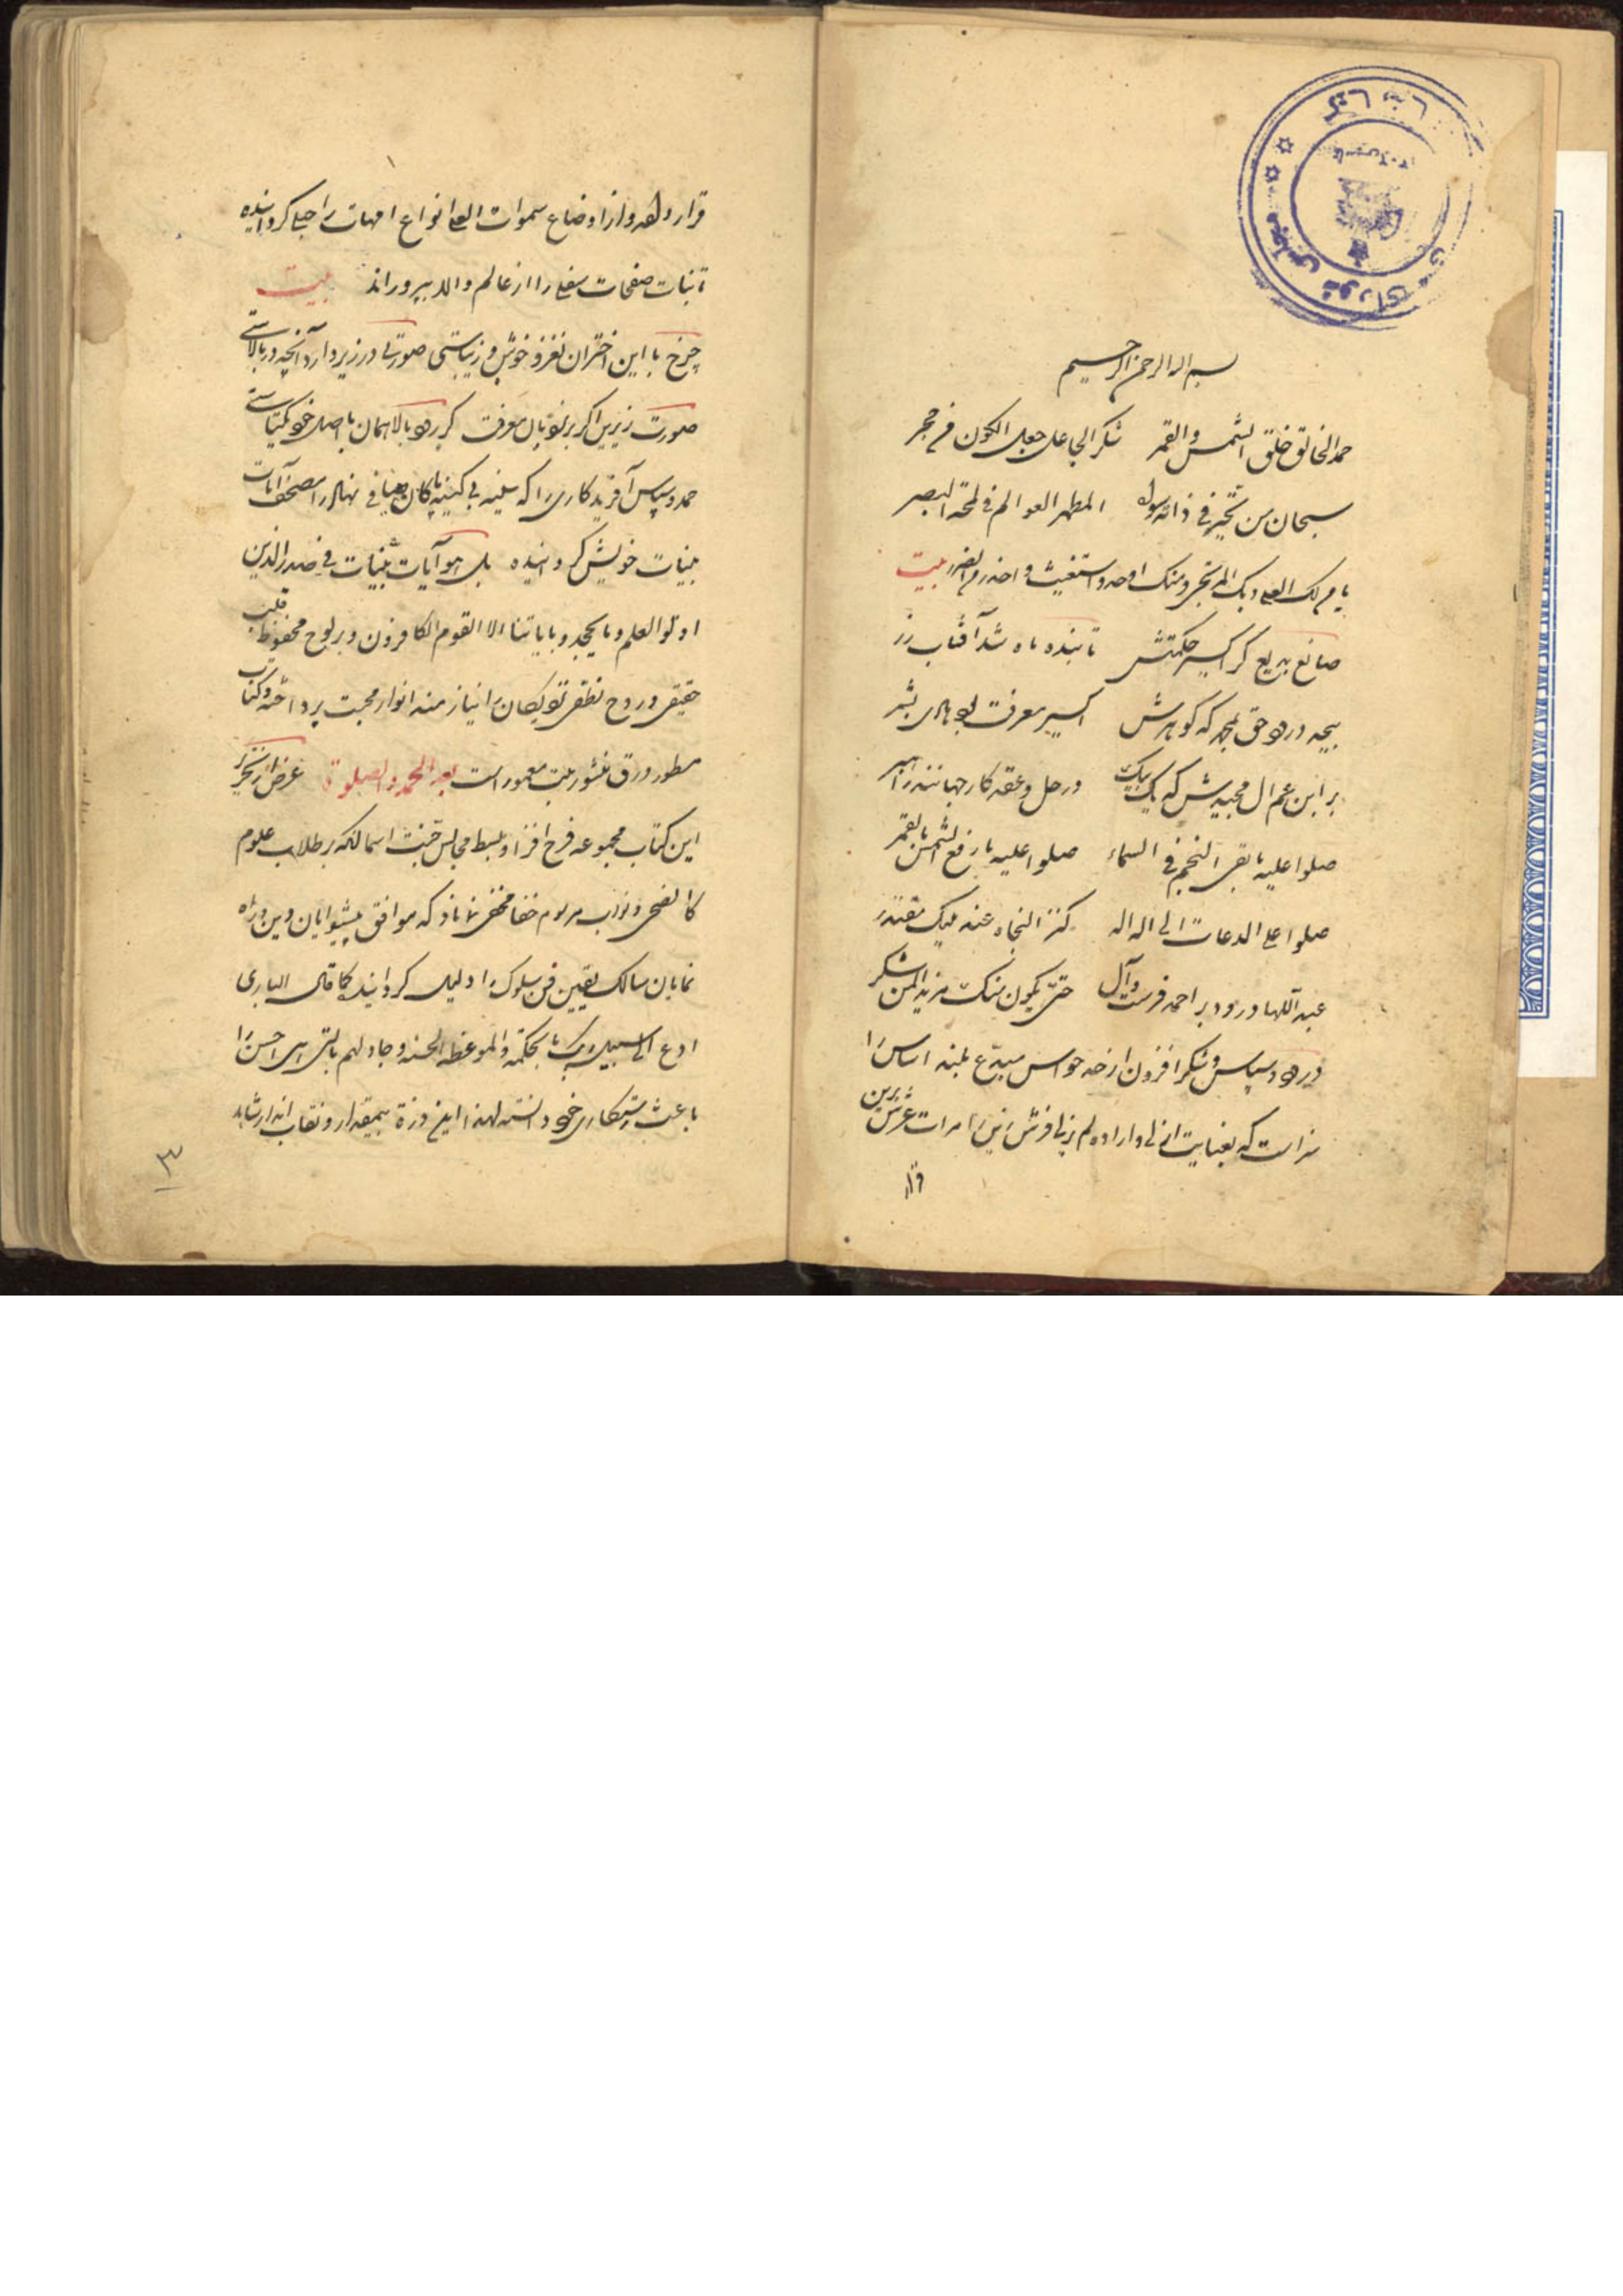 بسم الله الرحمن الرحیم
حمد الخالق خلق الشمس والقمر شکر الجاعل جعل الکون فی حجر
سبحان من تحیر فی ذاته سواه المظهر العوالم فی لمحة البصر
یا من لک العلی وبک المرتجی ومنک ارجو واستغیث واحذر من الضرر بیت
صانع بدیع کز اکسیر حکمتش تابنده ماه شد آفتاب زر
بیحد درود حق بمحمد که گوهرش اکسیر معرفت بود هادی بشر
بر ابن عم آل مجیدش که یک بیک در حل و عقد کار جهانند راهبر
صلوا علیه ما بقی النجم فی السماء صلوا علیه ما رفع الشمس بالقمر
صلوا علی الدعات الی اله اله کنز النجاة عند ملیک مقتدر
عبد اللها درود بر احمد فرست وآل حتی یکون منک مزید المن شکر
درود و سپاس و شکر افزون از حد حواس مبدع بلند اساس را
سزاست که بعنایت ازلی و اراده لم یزلی فرش زمین را مرات عرش برین
قرار
قرار داده و از اوضاع سموات العلی انواع امهات را حبلی کردانیده
تا نبات صفحات سفلی را از عالم والد بپروراند بیت
چرخ با این اختران نغز و خوش و زیباستی صورتی در زیر دارد آنچه در بالاستی
صورت زیرین اکر بر نردبان معرفت بر رود بالا همان با اصل خود یکتاستی
حمد و سپاس آفریدکاری را که سینه بی کینه پاکان را مصحف آیات
بینات خویش کردانیده بل هو آیات بینات فی صدر الذین
اوتوا العلم وما یجحد بایاتنا الا القوم الکافرون و بر لوح محفوظ قلب
حقیقی و روح نطقی را نیازمند انوار محبت پرداخته و کتاب
مسطور و رق منشور بیت معمور است بعد الحمد والصلوة غرض از تحریر
این کتاب مجموعه فرح افزا و بسط مجالس جنت اسا آنکه بر طلاب علوم
مخفی نماناد که موافق پیشوایان دین و راه
نمایان سالک یقین فن سلوک را دلیل کردانید کما قال الباری
ادع الی سبیل ربک بالحکمة والموعظة الحسنه وجادلهم بالتی هی احسن را
باعث رستکاری خود دانسته لهذا این ذرة بیمقدار و نقاب انداز شاهد
۳